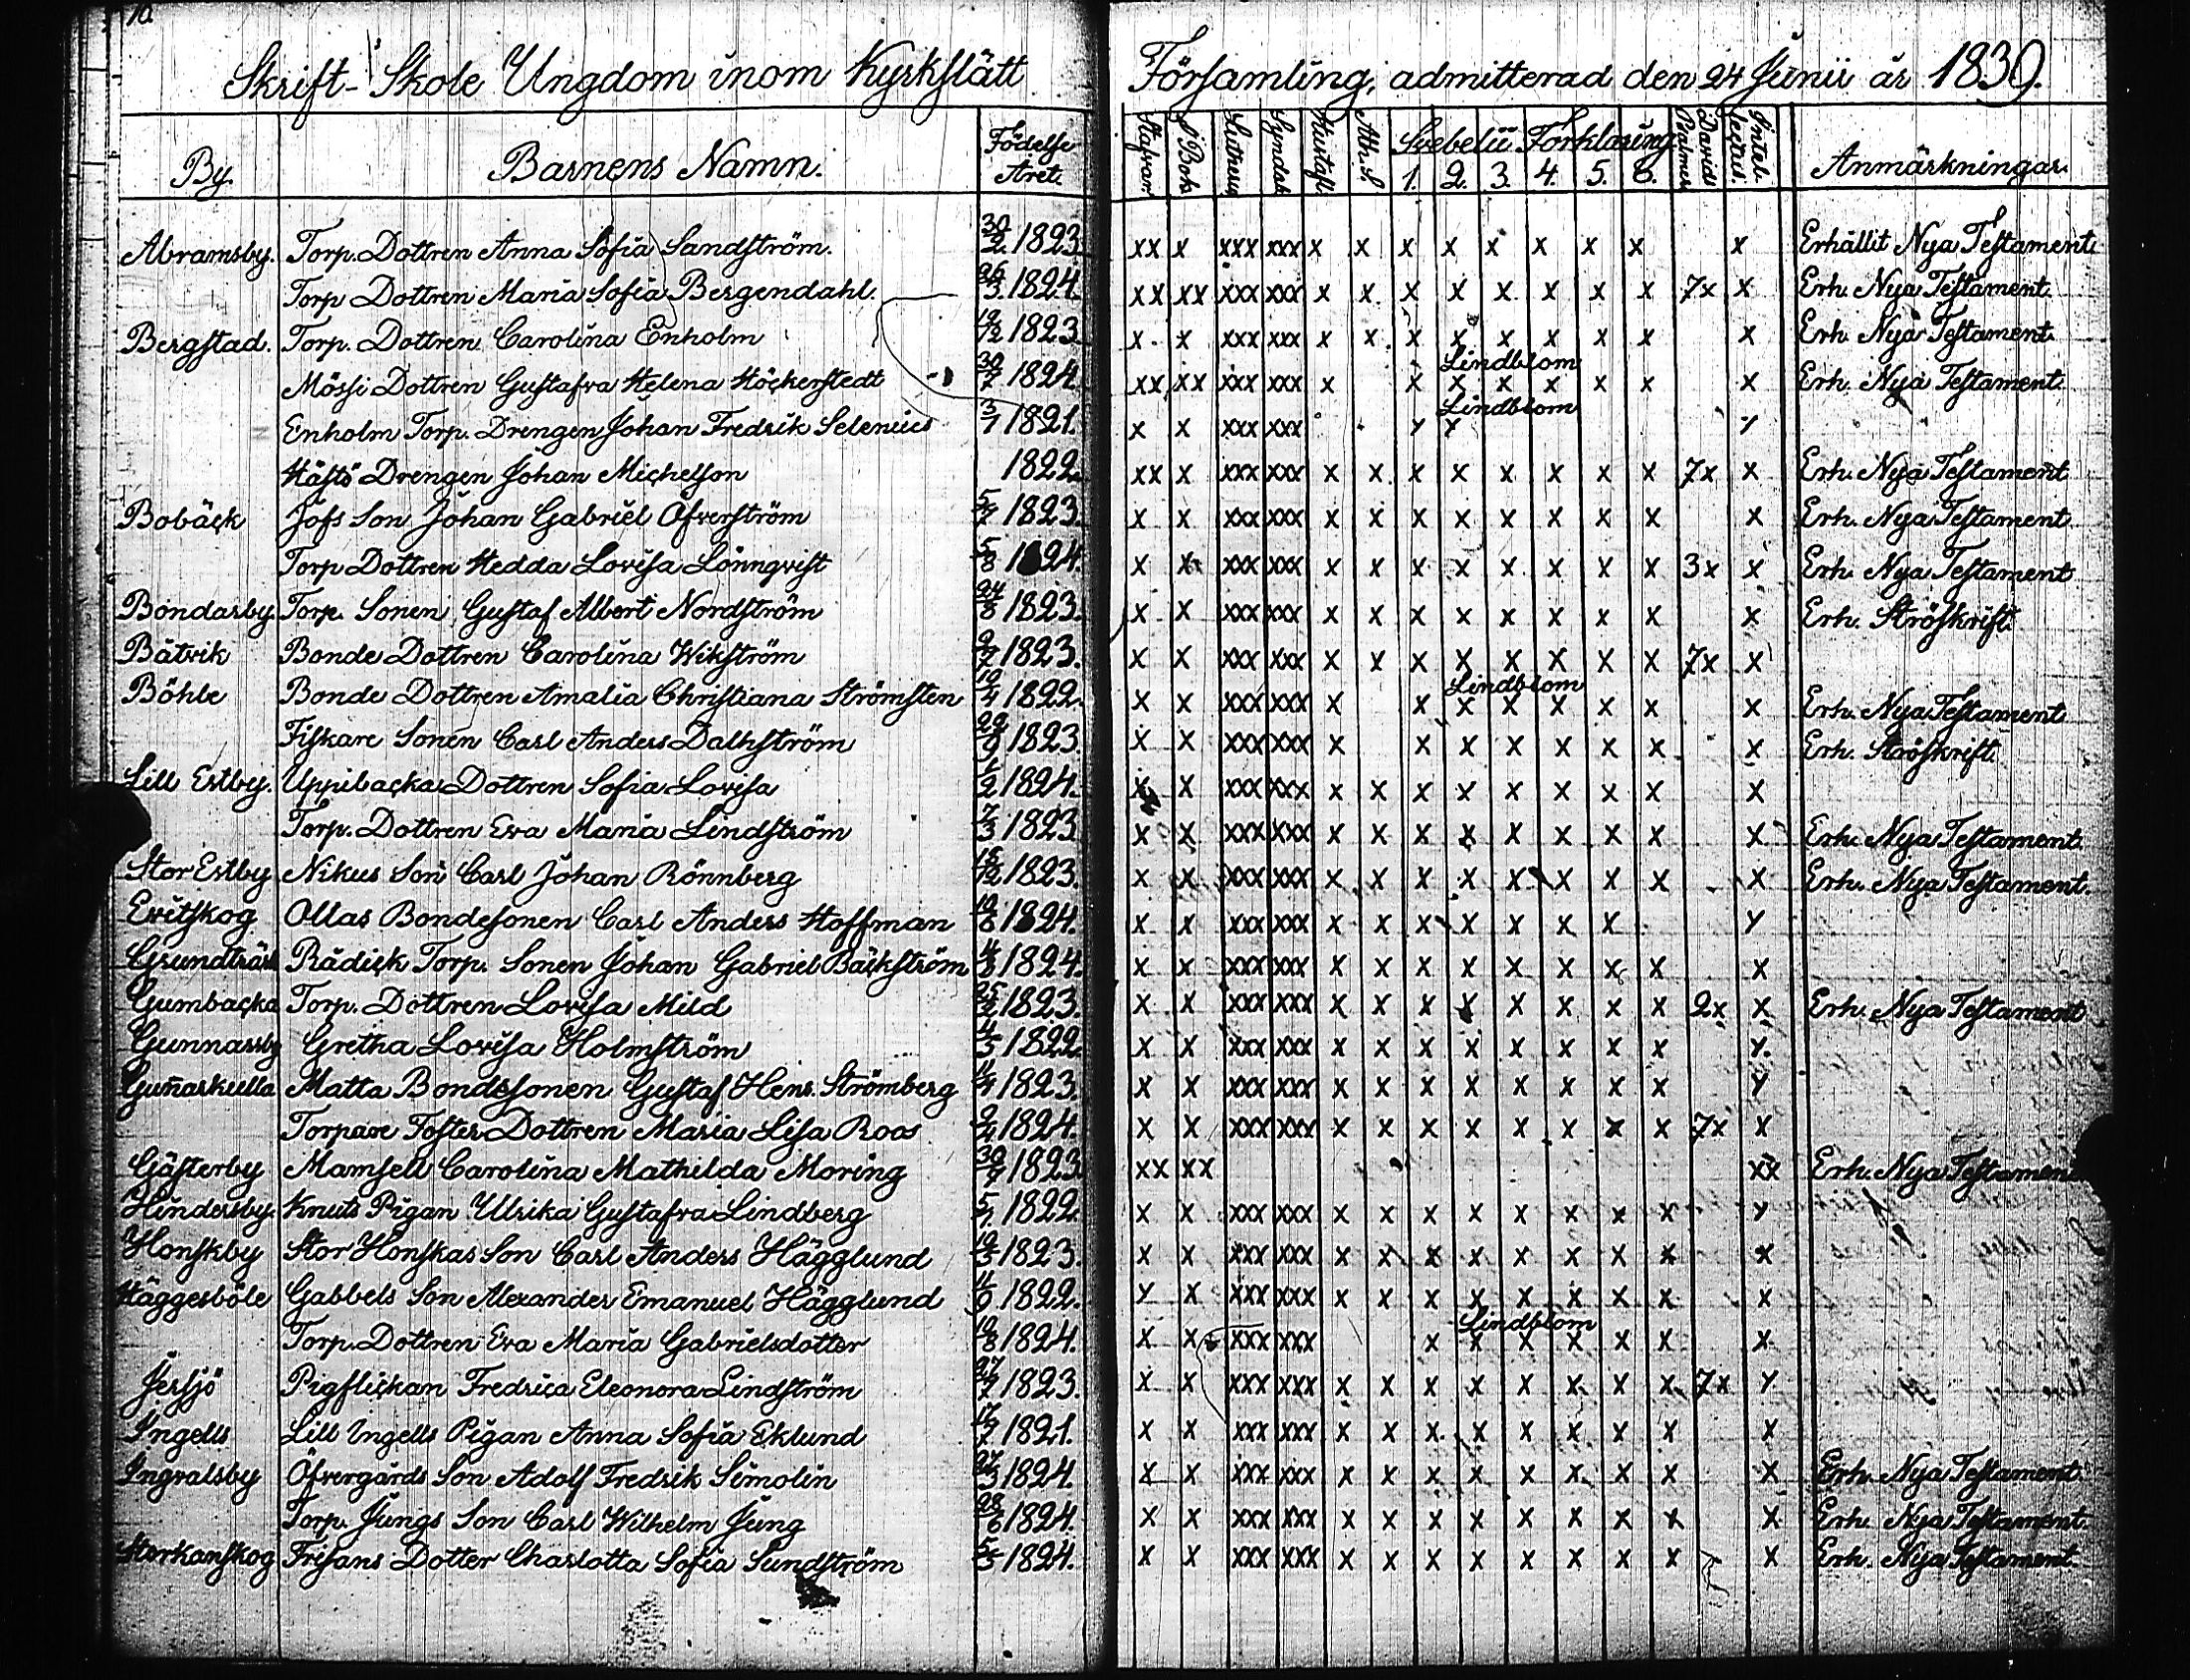 10.
Skrift-Skole Ungdom inom Kyrkslätt Församling, admitterad den 24 Junii år 1839.
By. Barnens Namn. Födelse Året. Stafvar I Bok Lutheus Syndab Hustafl. Ath. S. Svebelii Förklaring 1. 2. 3. 4. 5. 6. Davids Psalmer Intellectus. Anmärkningar.
Abramsby. Torp. Dottren Anna Sofia Sandström. 30/2 1823 xx x xxx xxx x x x x x x x x x Erhållit Nya Testament.
Torp Dottren Maria Sofia Bergendahl. 26/3 1824 xx xx xxx xxx x x x x x x x x 7x x Erh. Nya Testament.
Bergstad. Torp. Dottren Carolina Enholm 19/12 1823 x x xxx xxx x x x x x x x x x Erh. Nya Testament.
Lindblom
Mössi Dottren Gustafva Helena Höckerstedt 30/7 1824 xx xx xxx xxx x x x x x x x x Erh. Nya Testament.
Lindblom
Enholm Torp. Drengen Johan Fredrik Selenius 3/7 1821. x x xxx xxx x x x
Häfts Drengen Johan Michelson 1822. xx x xxx xxx x x x x x x x x 7x x Erh. Nya Testament
Bobäck Jofs Son Johan Gabriel Öfverström 5/7 1823. x x xxx xxx x x x x x x x x x Erh. Nya Testament
Torp Dottren Hedda Lovisa Lönnqvist 5/8 1824. x x xxx xxx x x x x x x x x 3x x Erh. Nya Testament
Bondarby. Torp. Sonen Gustaf Albert Nordström 24/8 1823. x x xxx xxx x x x x x x x x x Erh. Ströskrift.
Båtvik Bonde Dottren Carolina Wikström 9/7 1823. x x xxx xxx x x x x x x x x 7x x
Lindblom
Böhle Bonde Dottren Amalia Christiana Strömsten 19/4 1822. x x xxx xxx x x x x x x x x Erh. Nya Testament
Fiskare Sonen Carl Anders Dalhström 29/9 1823. x x xxx xxx x x x x x x x x Erh. Ströskrift.
Lill Estby. Uppibacka Dottren Sofia Lovisa 1/2 1824. x x xxx xxx x x x x x x x x x
Torp. Dottren Eva Maria Lindström 7/3 1823 x x xxx xxx x x x x x x x x x Erh. Nya Testament.
Stor Estby Nikus Son Carl Johan Rönnberg 15/12 1823. x x xxx xxx x x x x x x x x x Erh. Nya Testament.
Evitskog Ollas Bondesonen Carl Anders Hoffman 10/8 1824. x x xxx xxx x x x x x x x x
Grundträsk Rädick Torp. Sonen Johan Gabriel Bäckström 4/8 1824. x x xxx xxx x x x x x x x x x
Gumbacka Torp. Dottren Lovisa Mild 25/12 1823. x x xxx xxx x x x x x x x x 2x x Erh. Nya Testament
Gunnarsby Gretha Lovisa Holmström 4/5 1822 x x xxx xxx x x x x x x x x x
Guñarskulla Matta Bondesonen Gustaf Henr. Strömberg 11/4 1823. x x xxx xxx x x x x x x x x x
Torpare Foster Dottren Maria Lisa Roos 9/4 1824. x x xxx xxx x x x x x x x x 7x x
Gästerby Mamsell Carolina Mathilda Moring 30/7 1823 xx xx xx Erh. Nya Testament
Hindersby. Knuts Pigan Ulrika Gustafva Lindberg 5/7 1822. x x xxx xxx x x x x x x x x x
Honskby Stor Honskas Son Carl Anders Hägglund 19/3 1823. x x xxx xxx x x x x x x x x x
Häggesböle Gabbels Son Alexander Emanuel Hägglund 11/9 1822. x x xxx xxx x x x x x x x x x
Lindblom
Torp. Dottren Eva Maria Gabrielsdotter 19/8 1824. x x xxx xxx x x x x x x x
Jersjö Pigflickan Fredrica Eleonora Lindström 27/7 1823. x x xxx xxx x x x x x x x x 7x x
Ingells Lill Ingells Pigan Anna Sofia Eklund 17/7 1821. x x xxx xxx x x x x x x x x x
Ingvalsby Öfvergårds Son Adolf Fredrik Simolin 27/3 1824. x x xxx xxx x x x x x x x x x Erh. Nya Testament
Torp. Jungs Son Carl Wilhelm Jung 28/6 1824. x x xxx xxx x x x x x x x x x Erh. Nya Testament.
Storkanskog Frisans Dotter Charlotta Sofia Sundström 5/3 1824. x x xxx xxx x x x x x x x x x Erh. Nya Testament.